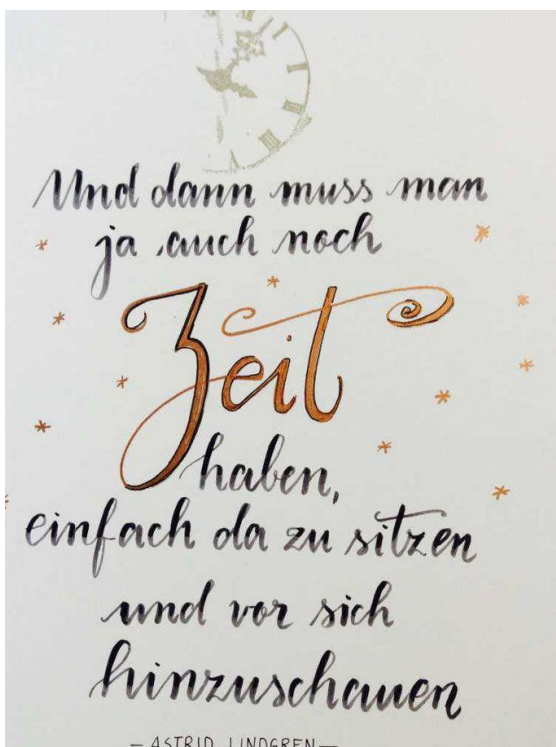 Und dann muss man
ja auch noch
Zeit
haben,
einfach da zu sitzen
und vor sich
hinzuschauen
– ASTRID LINDGREN –